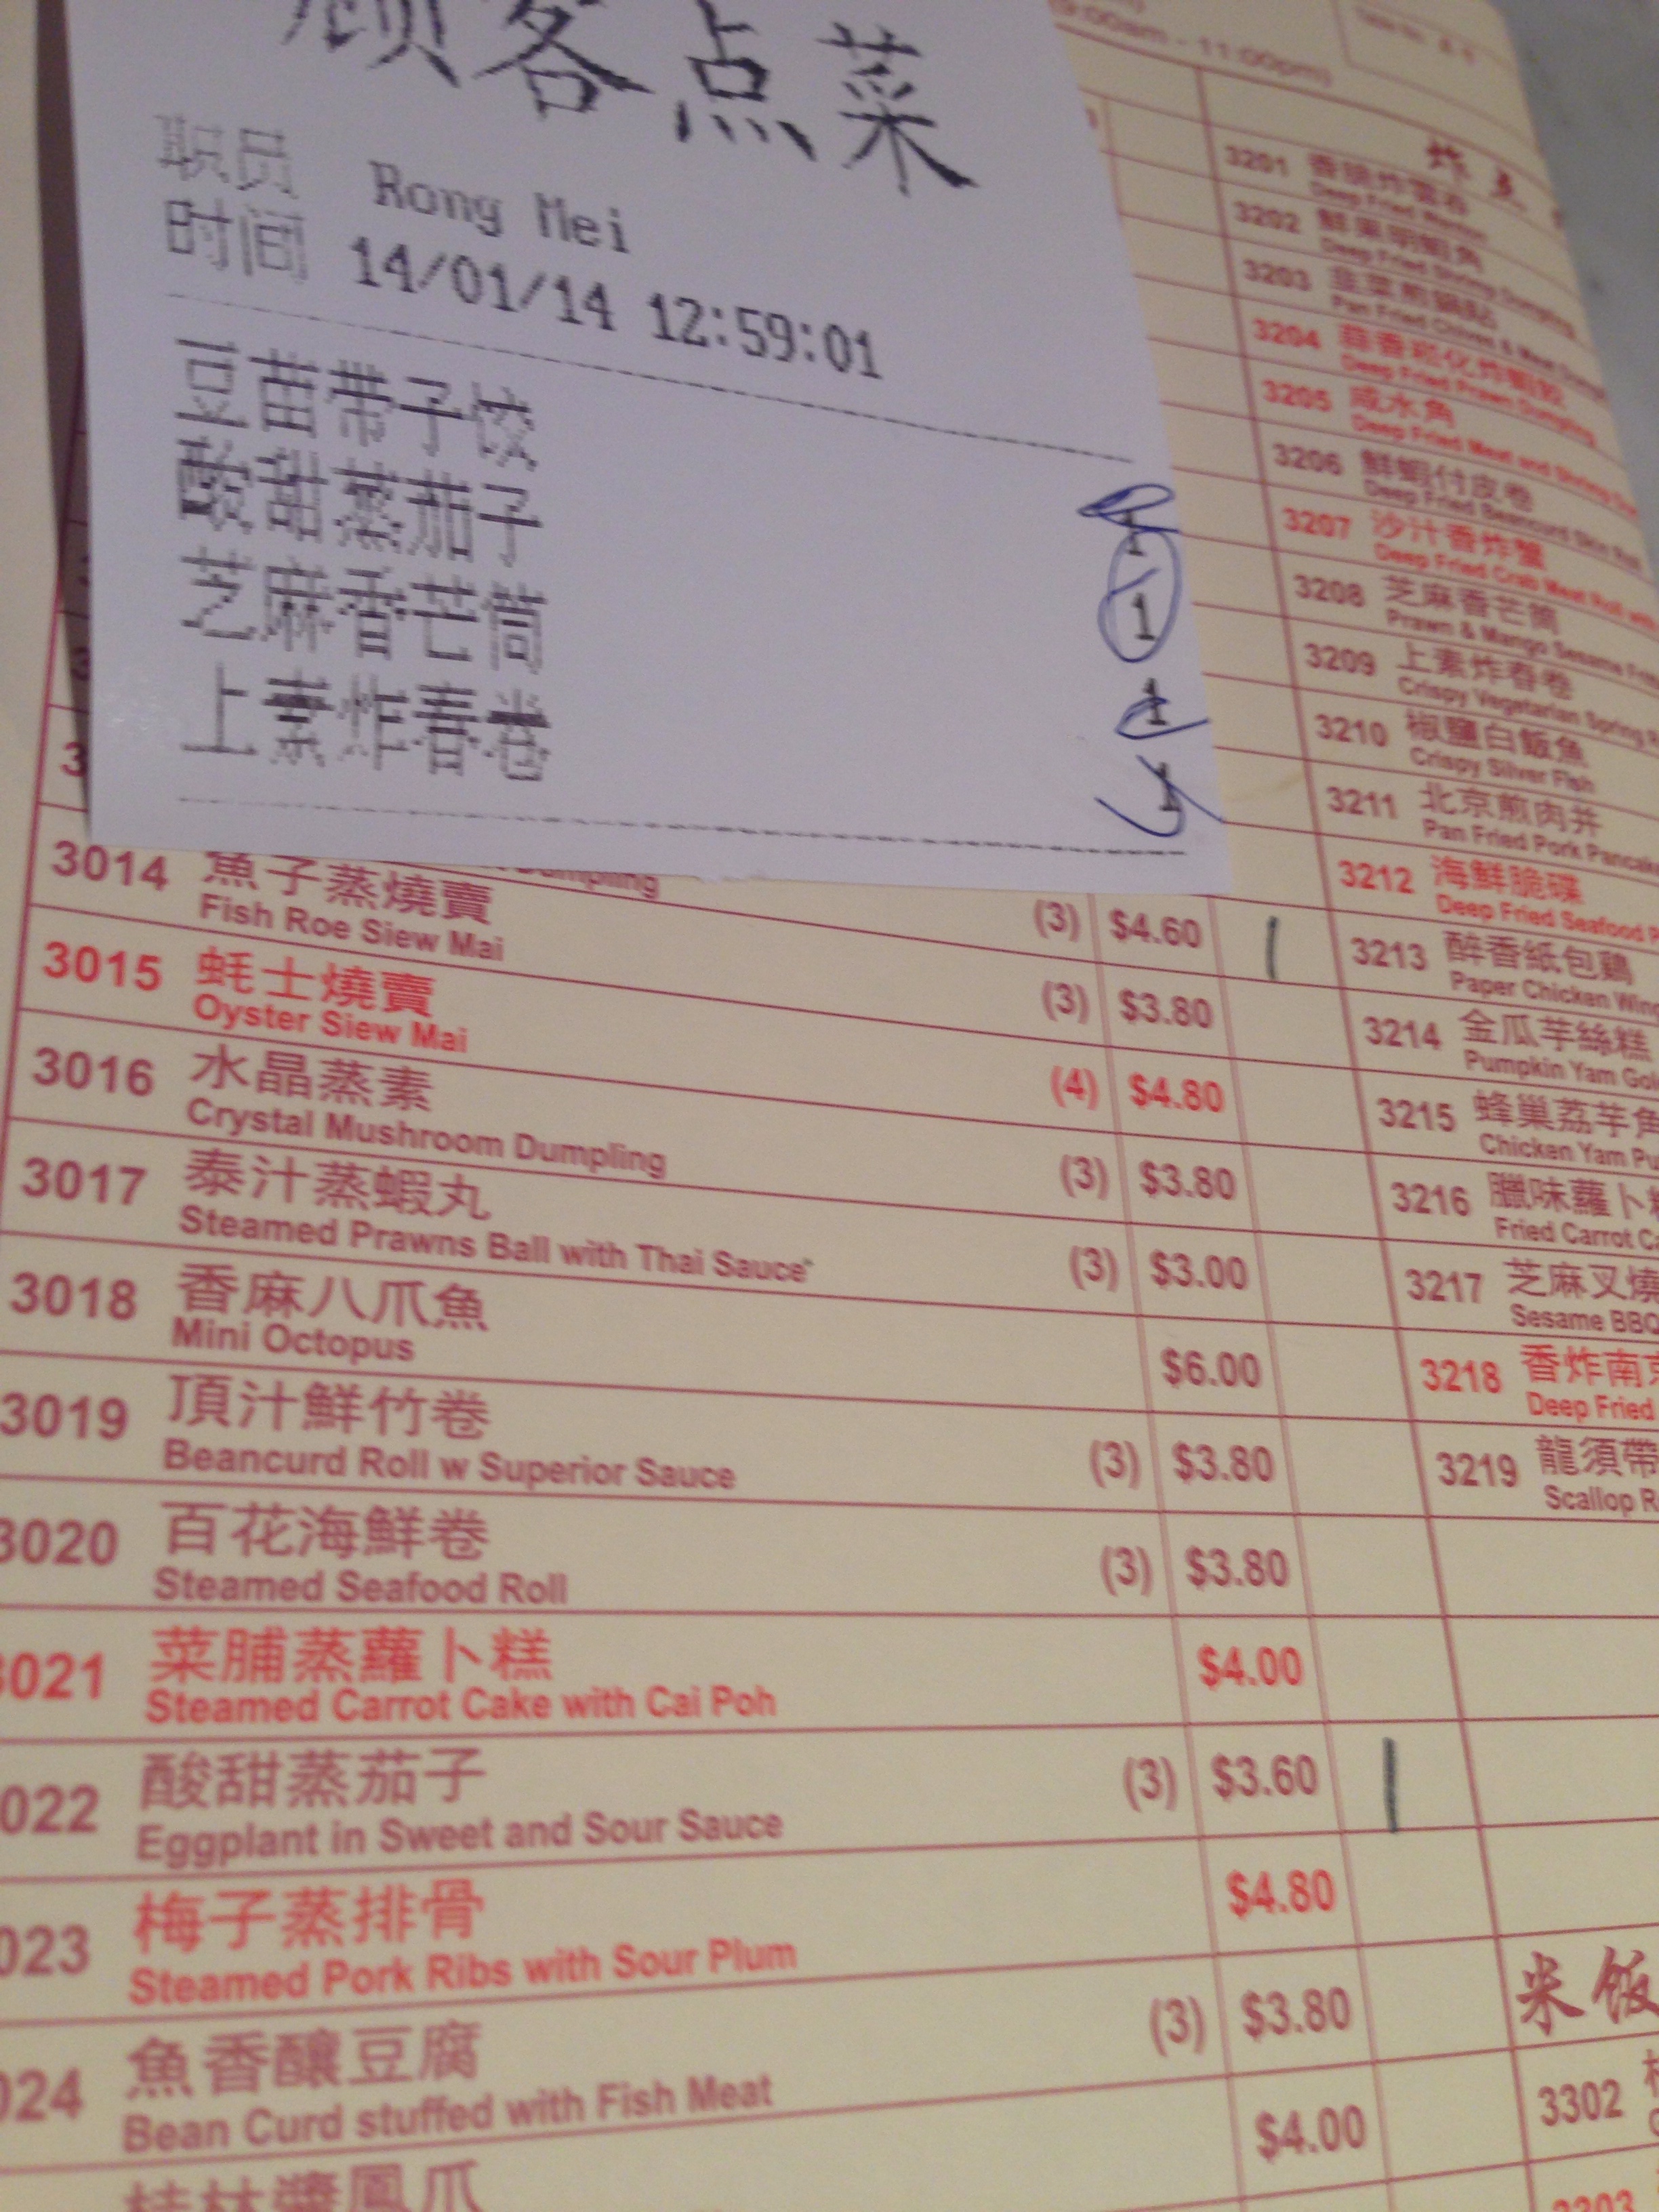 顾客点菜
职员 Rong Mei
时间 14/01/14 12:59:01
豆苗带子饺 1
酸甜蒸茄子 1
芝麻香芒筒 1
上素炸春卷 1
Dumpling
(3) $4.60
3014 魚子蒸燒賣
Fish Roe Siew Mai
(3) $3.80
3015 蚝士燒賣
Oyster Siew Mai
(4) $4.80
3016 水晶蒸素
Crystal Mushroom Dumpling
(3) $3.80
3017 泰汁蒸蝦丸
Steamed Prawns Ball with Thai Sauce
(3) $3.00
3018 香麻八爪魚
Mini Octopus
$6.00
3019 頂汁鮮竹卷
Beancurd Roll w Superior Sauce
(3) $3.80
3020 百花海鮮卷
Steamed Seafood Roll
(3) $3.80
3021 菜脯蒸蘿卜糕
Steamed Carrot Cake with Cai Poh
$4.00
022 酸甜蒸茄子
Eggplant in Sweet and Sour Sauce
(3) $3.60
023 梅子蒸排骨
Steamed Pork Ribs with Sour Plum
$4.80
024 魚香釀豆腐
Bean Curd stuffed with Fish Meat
(3) $3.80
桂林醬鳳爪
$4.00
(9:00am - 11:00pm)
炸点
3201 香脆炸雲吞
Deep Fried Wanton
3202 鮮果明蝦角
Deep Fried Shrimp Dumpling
3203 韭菜煎鍋貼
Pan Fried Chives & Meat
3204 蒜香崧化炸蝦餃
Deep Fried Prawn Dumpling
3205 咸水角
Deep Fried Meat and Shrimp
3206 鮮蝦付皮卷
Deep Fried Beancurd Skin Roll
3207 沙汁香炸蟹
Deep Fried Crab Meat Roll with
3208 芝麻香芒筒
Prawn & Mango Sesame
3209 上素炸春卷
Crispy Vegetarian Spring
3210 椒鹽白飯魚
Crispy Silver Fish
3211 北京煎肉并
Pan Fried Pork Pancake
3212 海鮮脆碟
Deep Fried Seafood
3213 醉香紙包鷄
Paper Chicken Wing
3214 金瓜芋絲糕
Pumpkin Yam
3215 蜂巢荔芋角
Chicken Yam
3216 臘味蘿卜
Fried Carrot
3217 芝麻叉燒
Sesame BBQ
3218 香炸南
Deep Fried
3219 龍須帶
Scallop
米饭
3302
3303